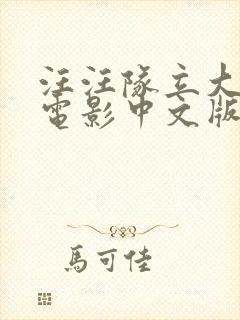 汪汪隊立大
電影中文版
馬可佳